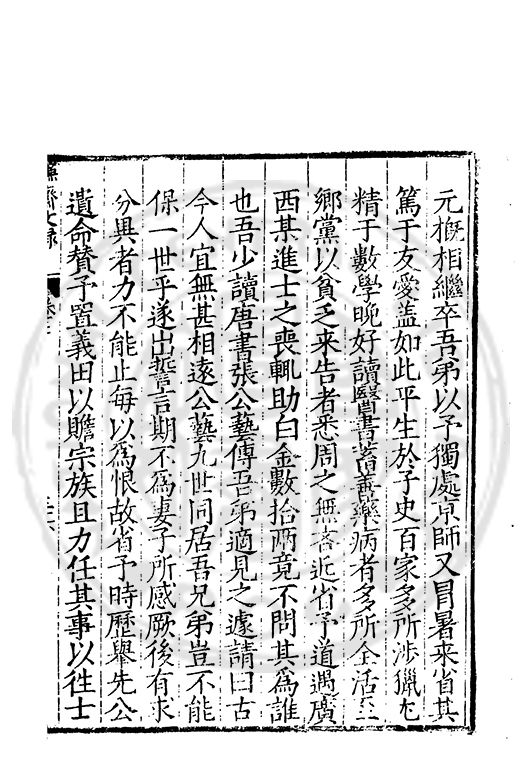 元概相繼卒吾弟以予獨處京師又冒暑來省其
篤于友愛盖如此平生於子史百家多所涉獵尤
精于數學晚好讀醫書蓄善藥病者多所全活至
鄉黨以貧乏來告者悉周之無吝近省予道遇廣
西某進士之喪輒助白金數拾兩竟不問其為誰
也吾少讀唐書張公藝傳吾弟適見之遽請曰古
今人宜無甚相遠公藝九世同居吾兄弟豈不能
保一世乎遂出誓言期不為妻子所惑厥後有求
分異者力不能止每以為恨故省予時歷舉先公
遺命賛予置義田以贍宗族且力任其事以徃士